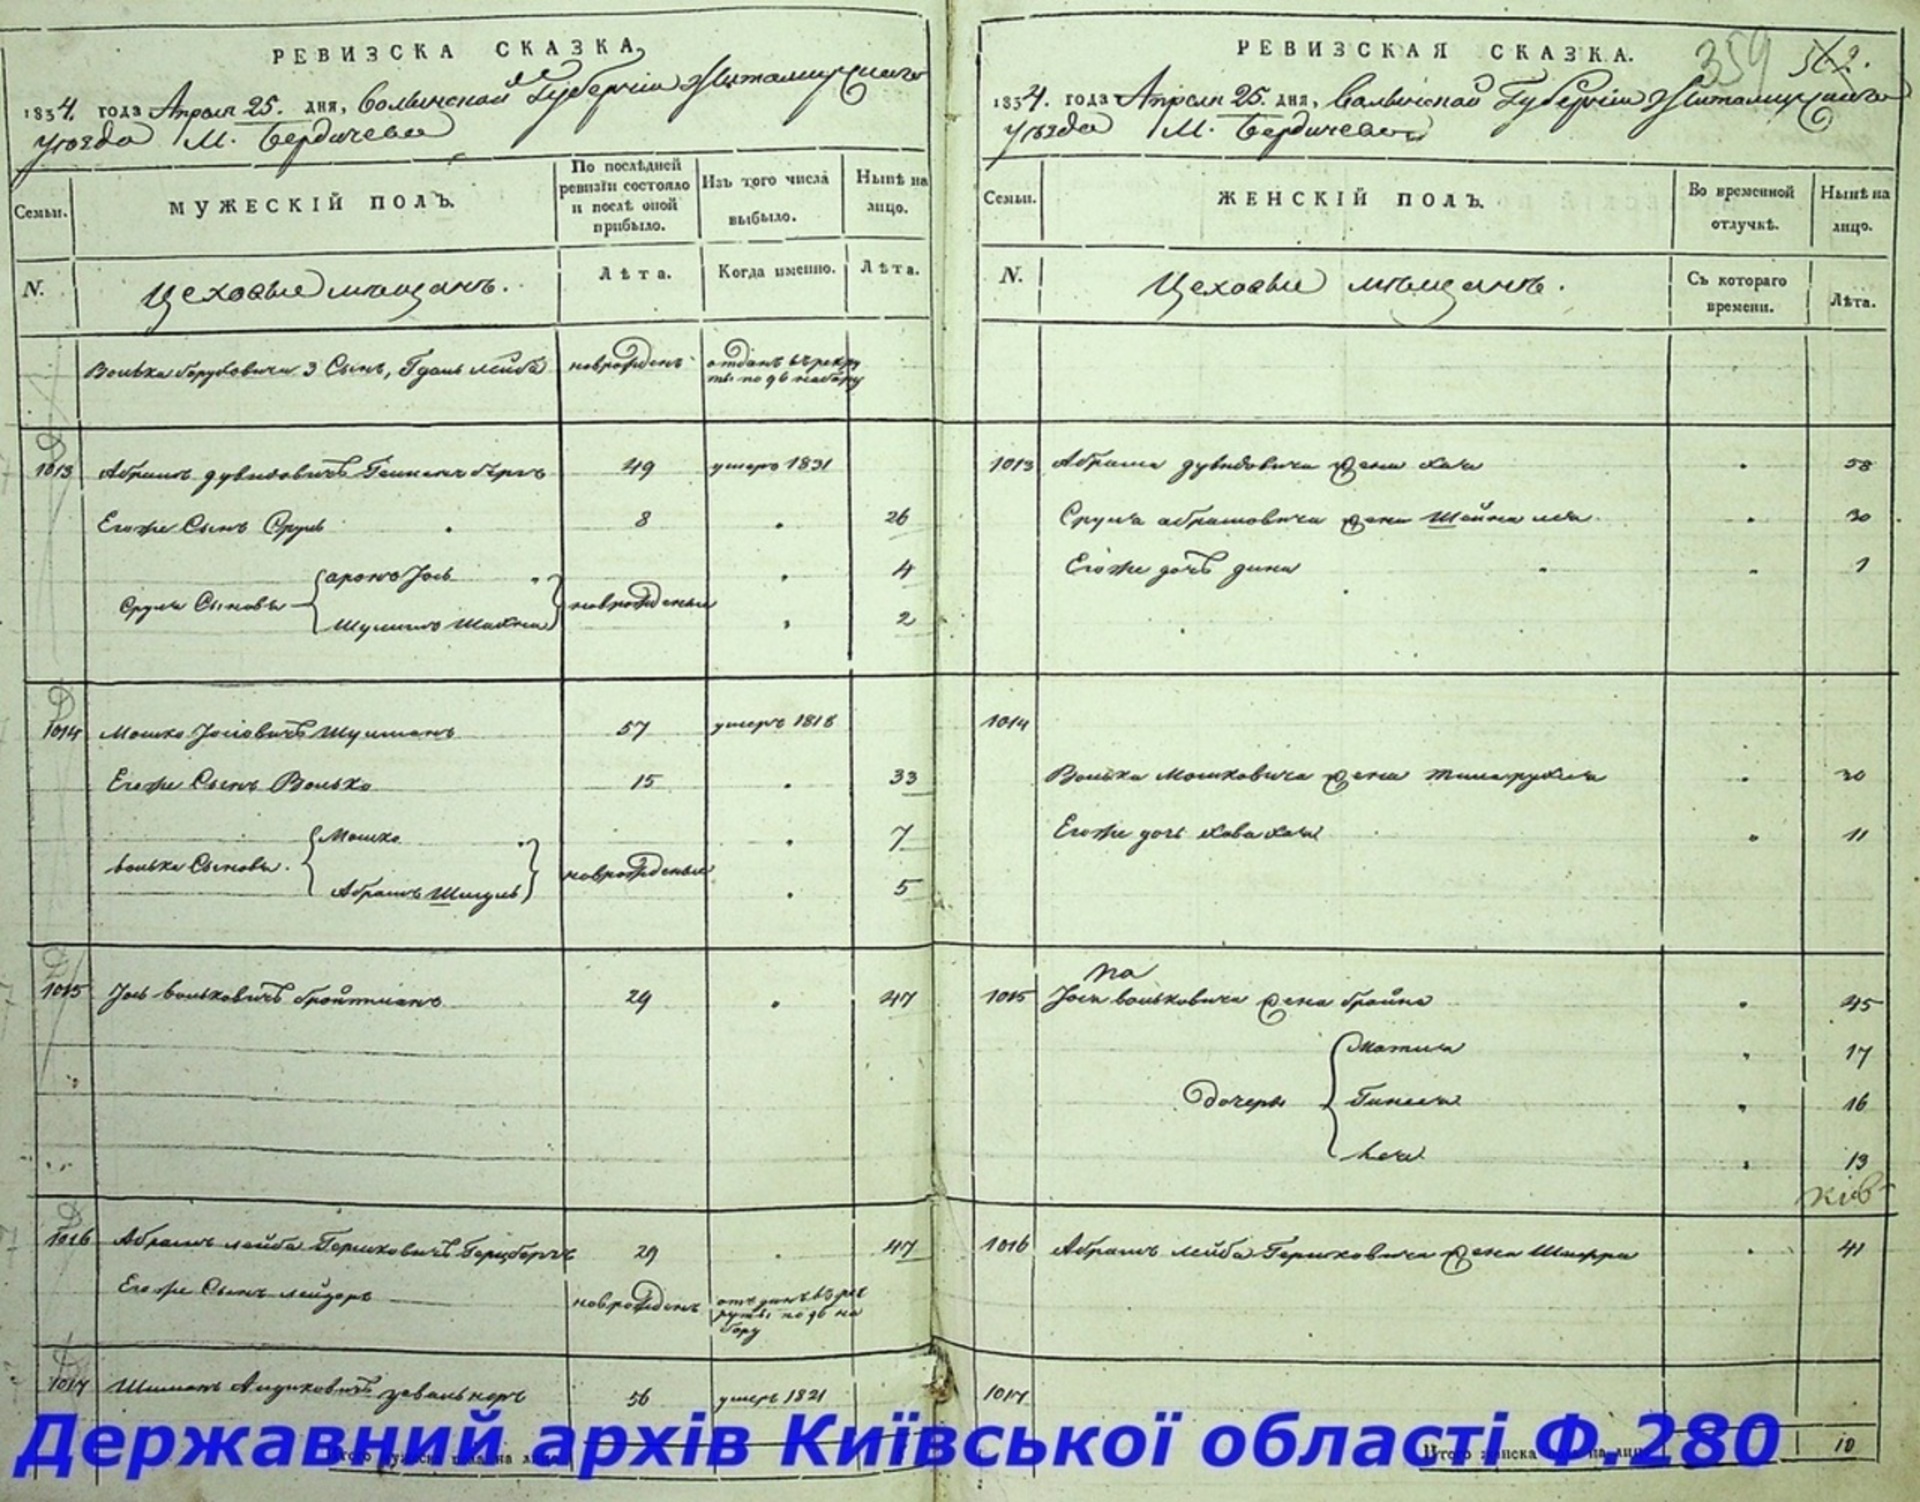 РЕВИЗСКА СКАЗКА
1834. года Апреля 25. дня, Волынской Губерніи Житомирскаго
уѣзда М. Бердичева
Семьи.
МУЖЕСКІЙ ПОЛЪ.
По послѣдней
ревизіи состояло
и послѣ оной
прибыло.
Изъ того числа
выбыло.
Нынѣ на
лицо.
N.
Цеховые мѣщанъ.
Лѣта.
Когда именно.
Лѣта.
3 Сынъ, Лейба новрожденъ отданъ въ рекру
ты по 96 набору
1013 Абрамъ Дувидовичъ 49 умеръ 1831
Егоже Сынъ Сруль 8 26
Сруля Сыновья Аронъ Іось новрожденыи 4
Шулимъ Шахна 2
1014 Мошко Іосіовичъ Шулманъ 57 умеръ 1818
Егоже Сынъ Волько 15 33
Волька Сыновья Мошко новрожденыи 7
Абрамъ Шмуль 5
1015 Іось Вольковичъ Бройтманъ 29 47
1016 Абрамъ Лейба Гершковичъ Герцбергъ 29 47
Егоже Сынъ Лейзоръ новрожденъ
по 96 на
бору
1017 56 умеръ 1821
Итого мужеска пола на лицо
РЕВИЗСКАЯ СКАЗКА.
359
1834. года Апреля 25. дня, Волынской Губерніи Житомирскаго
уѣзда М. Бердичева
Семьи.
ЖЕНСКІЙ ПОЛЪ.
Во временной
отлучкѣ.
Нынѣ на
лицо.
N.
Цеховые мѣщанъ.
Съ котораго
времени.
Лѣта.
1013 Абрама Дувидовича жена Хая 58
Сруля Абрамовича жена Шейна Лея 30
Егоже дочь Дина 1
1014
Волька Мошковича жена 30
Егоже дочь Хава Хая 11
1015 Іося Вольковича жена Бройна 45
Дочеры 17
16
Лея 13
1016 Абрамъ Лейба Гершковича жена Шифра 41
1017
Итого женска на лицо 10
Державний архів Київської області Ф.280